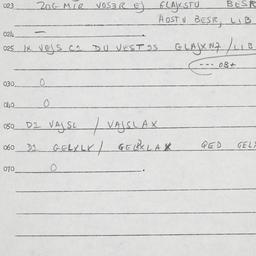 023 ZOG MIR VOS3R EJ GLAJXSTU BESR
AOSTU BESR, LIB
024 —
025 IX VEJS C1 DU VEST ES GLAJXN7 / LIB
--- 08+
030 0
040 0
050 D1 VAJSL / VAJSLAX
060 D1 GELXLX / GELXLAX GED GELX
070 0